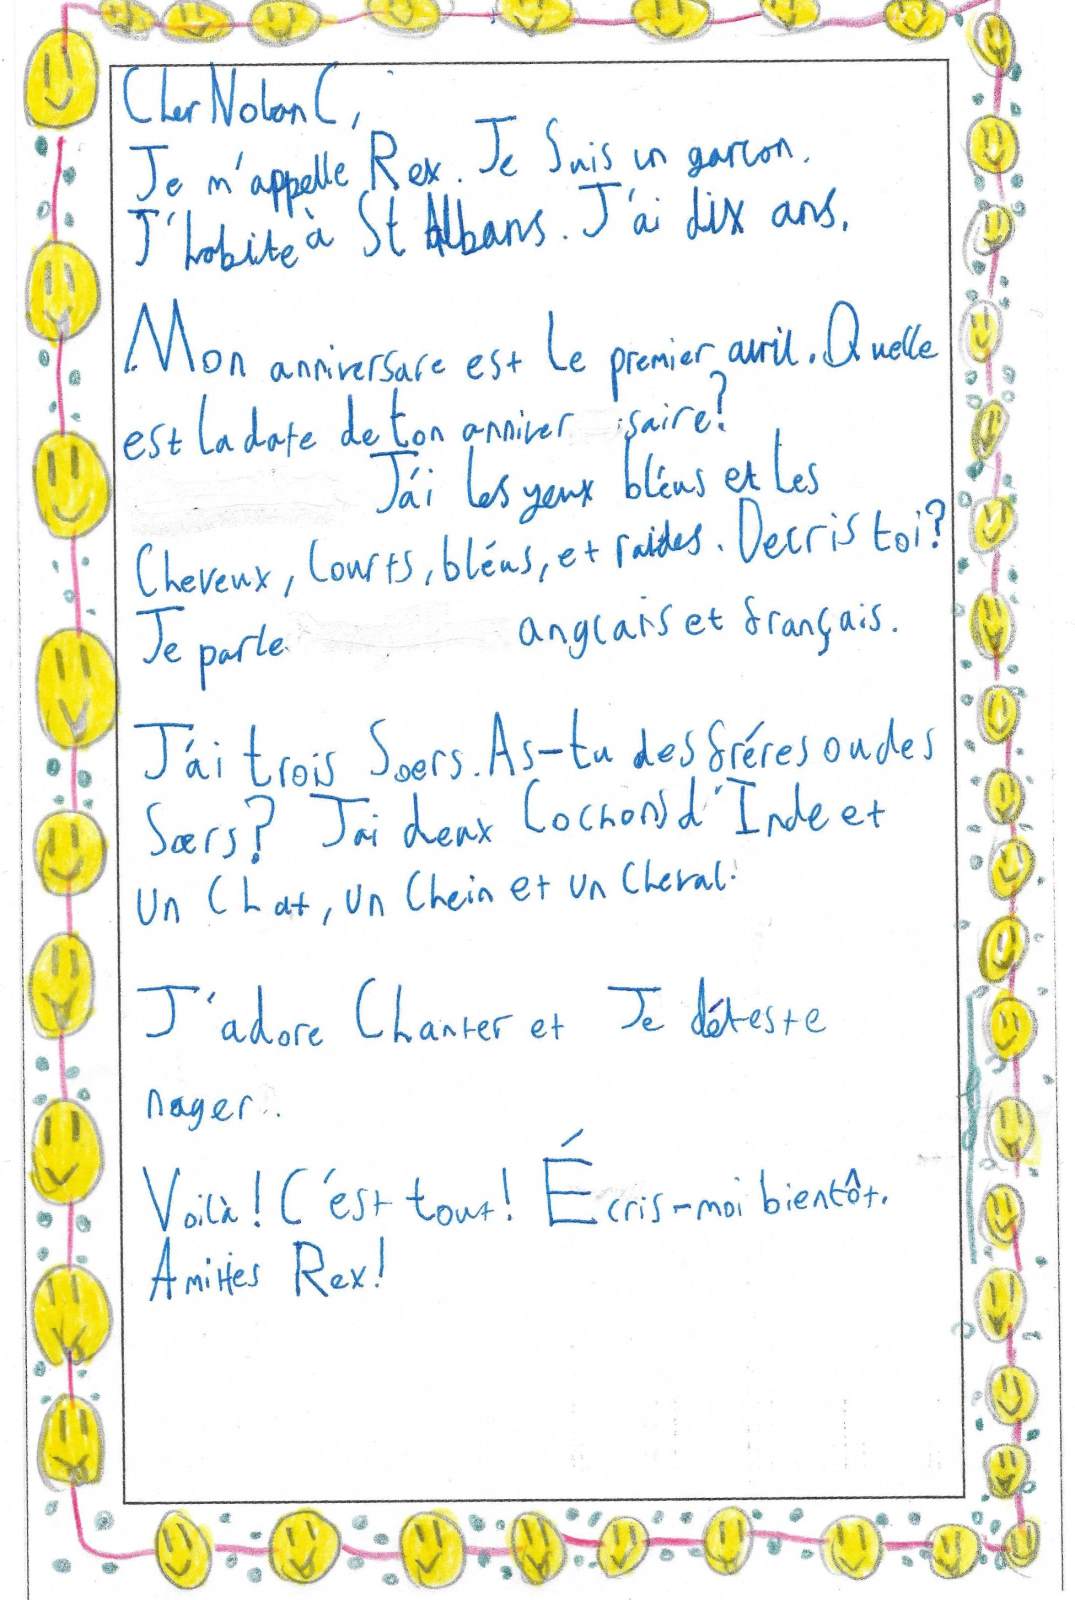 Cher Nolan C,
Je m'appelle Rex. Je Suis un garcon.
J'habite à St Albans. J'ai dix ans.
Mon anniversare est le premier avril. Quelle
est la date de ton anniver saire?
J'ai les yeux bléus et les
Cheveux, Courts, bléus, et raides. Decris toi?
Je parle anglais et français.
J'ai trois Soers. As-tu des fréres ou des
Sœrs? J'ai deux Cochons d'Inde et
un Chat, un Chein et un Cheval.
J'adore Chanter et Je déteste
nager.
Voilà! C'est tout! Écris-moi bientôt.
Amities Rex!